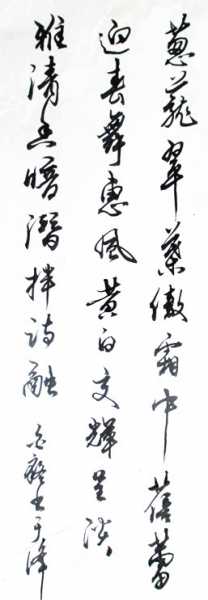 葱茏翠叶傲霜中蓓蕾
迎春舞惠风黄白交辉呈淡
雅清香暗潜拌诗融